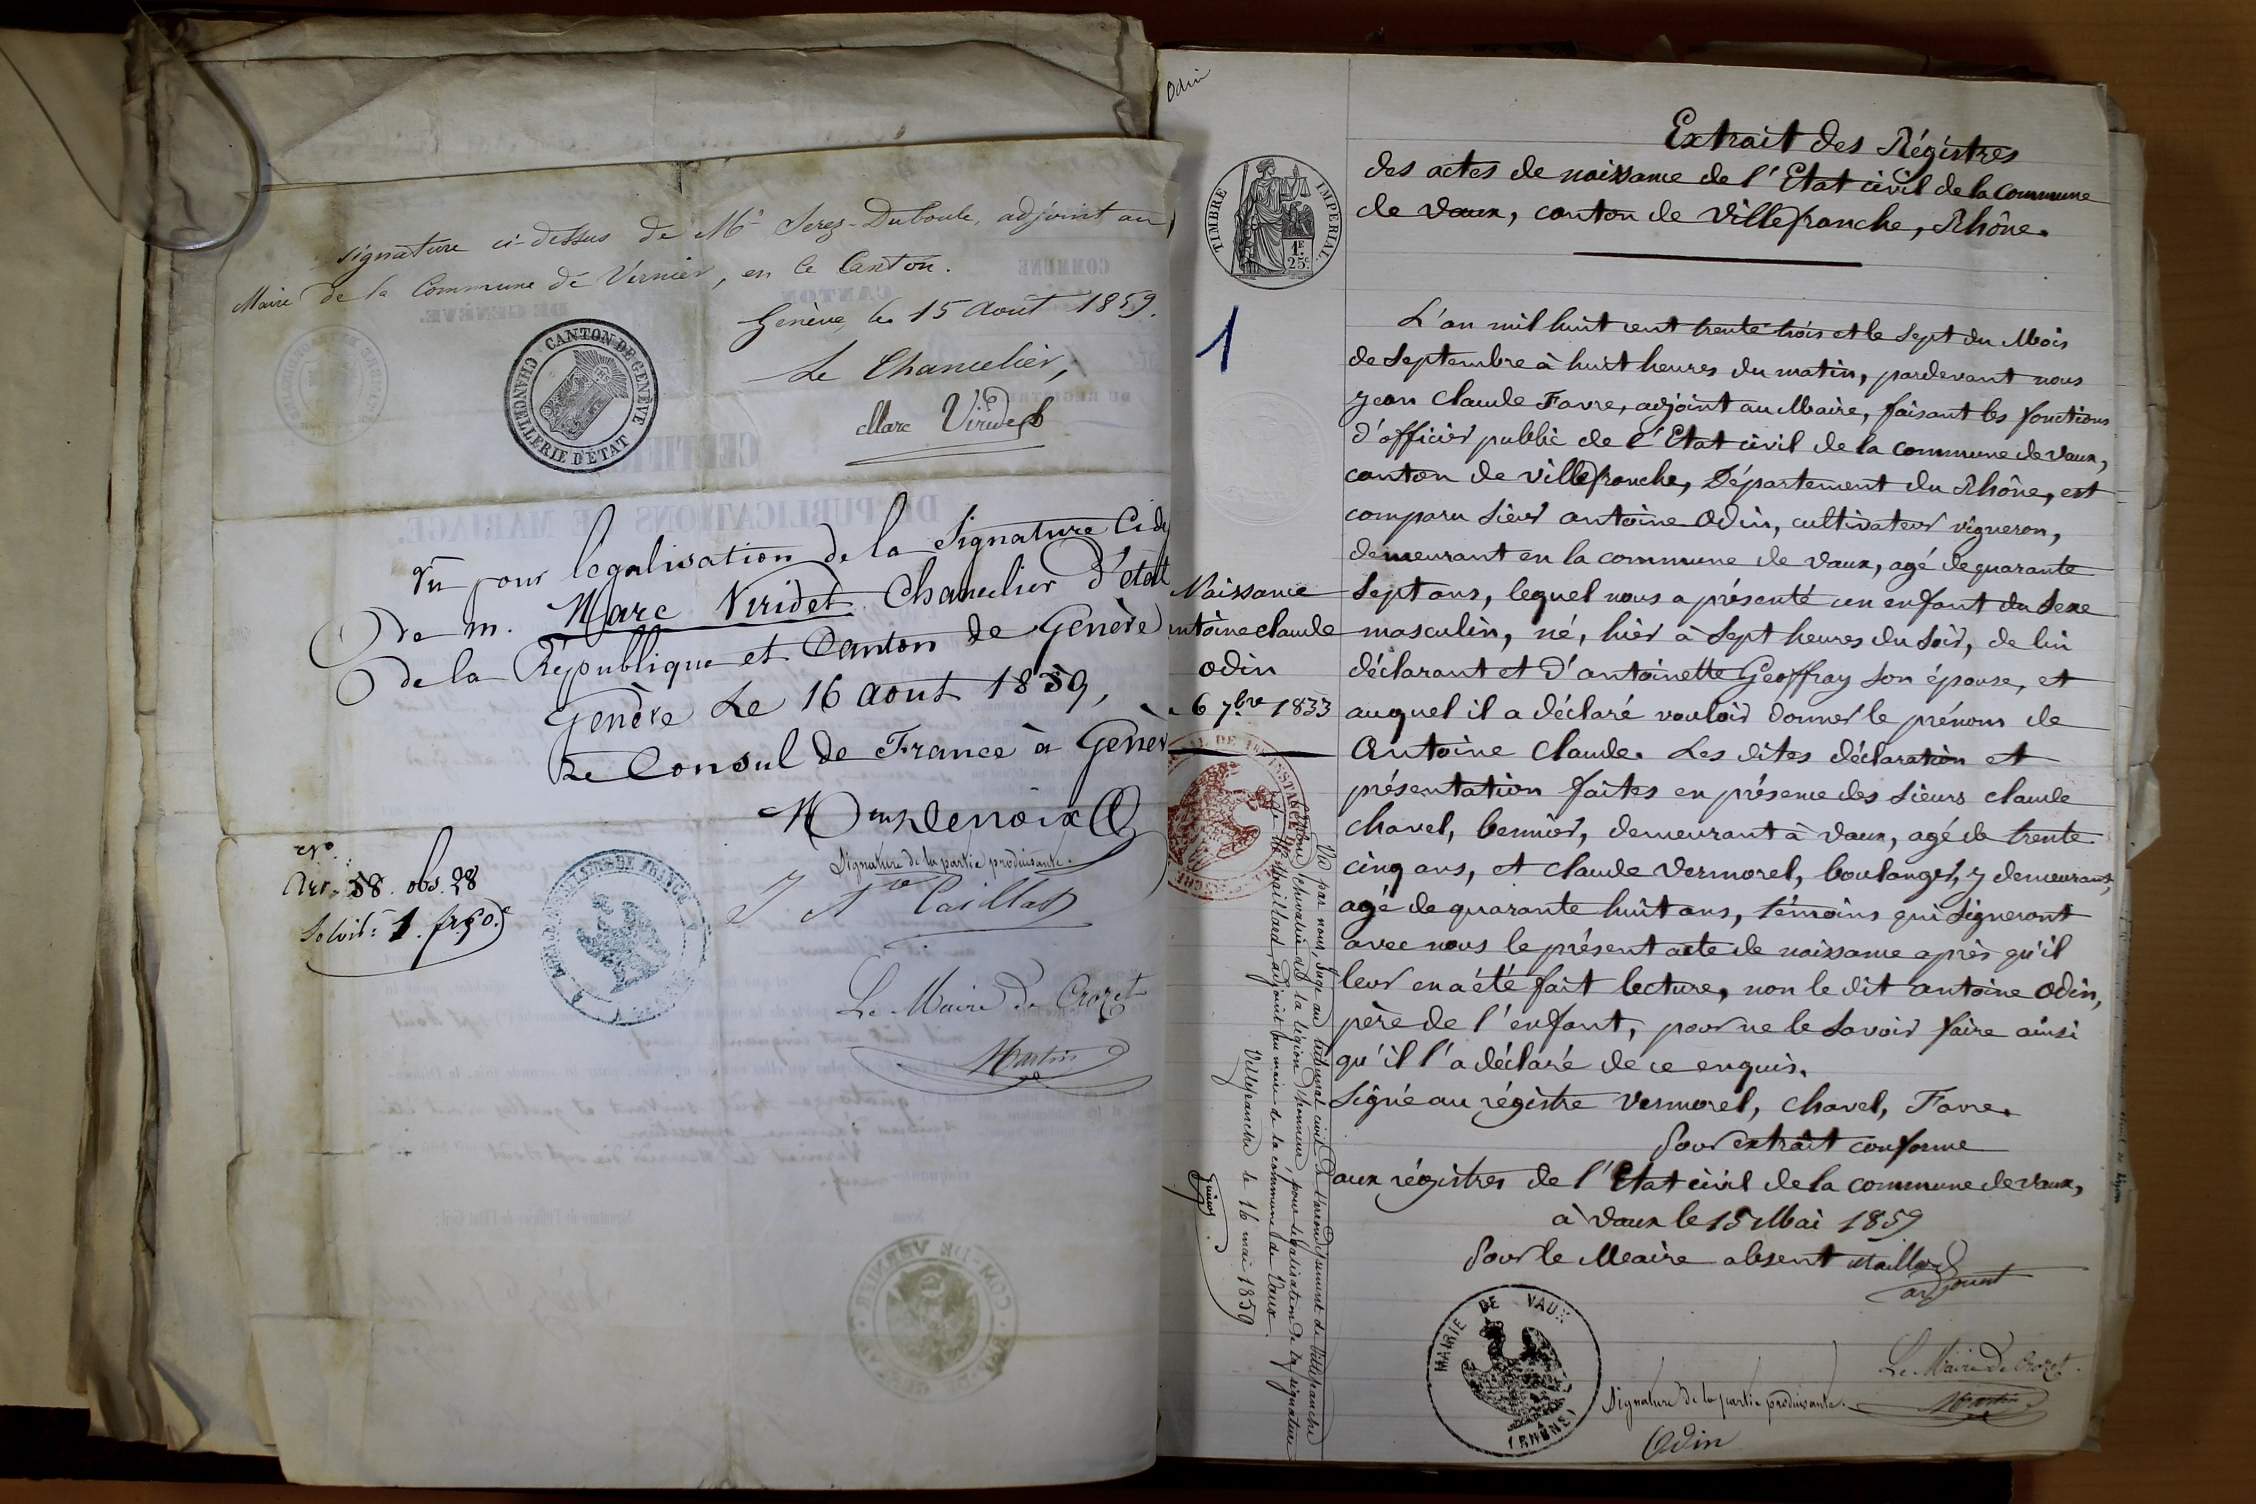 signature ci-dessus de Mr Serez-Duboule, adjoint au
Maire de la Commune de Vernier, en ce Canton.
Genève, le 15 Aout 1859.
CHANCELLERIE D'ÉTAT · CANTON DE GENÈVE
Le Chancelier,
Marc Viridet
Vu pour légalisation de la Signature Ci-d
de m. Marc Viridet Chancelier d'état
de la République et Canton de Genève
Genève Le 16 aout 1859,
Le Consul de France à Genèv
Signature de la partie produisante.
No.
Art. 58. obs. 28
Solvit: 1. fr. 50.c
Le Maire de Crozet
Martin
Odin
TIMBRE IMPERIAL
1F
25c.
1
Extrait des Régistres
des actes de naissance de l'Etat civil de la Commune
de Vaux, canton de Villefranche, Rhône.
L'an mil huit cent trente trois et le sept du Mois
de Septembre à huit heures du matin, pardevant nous
jean Claude Favre, adjoint au Maire, faisant les fonctions
d'officier public de l'Etat civil de la commune de vaux,
canton de villefranche, Département du Rhône, est
comparu sieur antoine Odin, cultivateur vigneron,
demeurant en la commune de Vaux, agé de quarante
Sept ans, lequel nous a présenté un enfant du Sexe
masculin, né, hier à Sept heures du Soir, de lui
déclarant et d'antoinette Geoffray Son épouse, et
auquel il a déclaré vouloir donner le prénom de
Antoine Claude. Les dites déclaration et
présentation faites en présence des Sieurs Claude
Chavel, bennier, demeurant à vaux, agé de trente
cinq ans, et Claude Vermorel, boulanger, y demeurant,
agé de quarante huit ans, témoins qui Signeront
avec nous le présent acte de naissance après qu'il
leur en a été fait lecture, non le dit antoine Odin,
père de l'enfant, pour ne le Savoir faire ainsi
qu'il l'a déclaré de ce enquis.
Signé au régistre Vermorel, Chavel, Favre.
Pour extrait conforme
aux régistres de l'Etat civil de la commune de vaux,
à Vaux le 15 Mai 1859
Pour le Maire absent Maillard
adjoint
Naissance
ntoine claude
Odin
6 7bre 1833
Vu par nous, Juge au tribunal civil de l'arrondissement de Villefranche
chevalier de la légion d'honneur, pour légalisation de la signature
de Mr Maillard, adjoint au maire de la commune de Vaux.
Villefranche le 16 mai 1859
MAIRIE DE VAUX
(RHÔNE)
Signature de la partie produisante.
Odin
Le Maire de Crozet
Martin